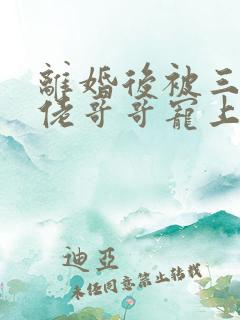 離婚後被三
佬哥哥寵上
迪亞
未經同意禁止轉載